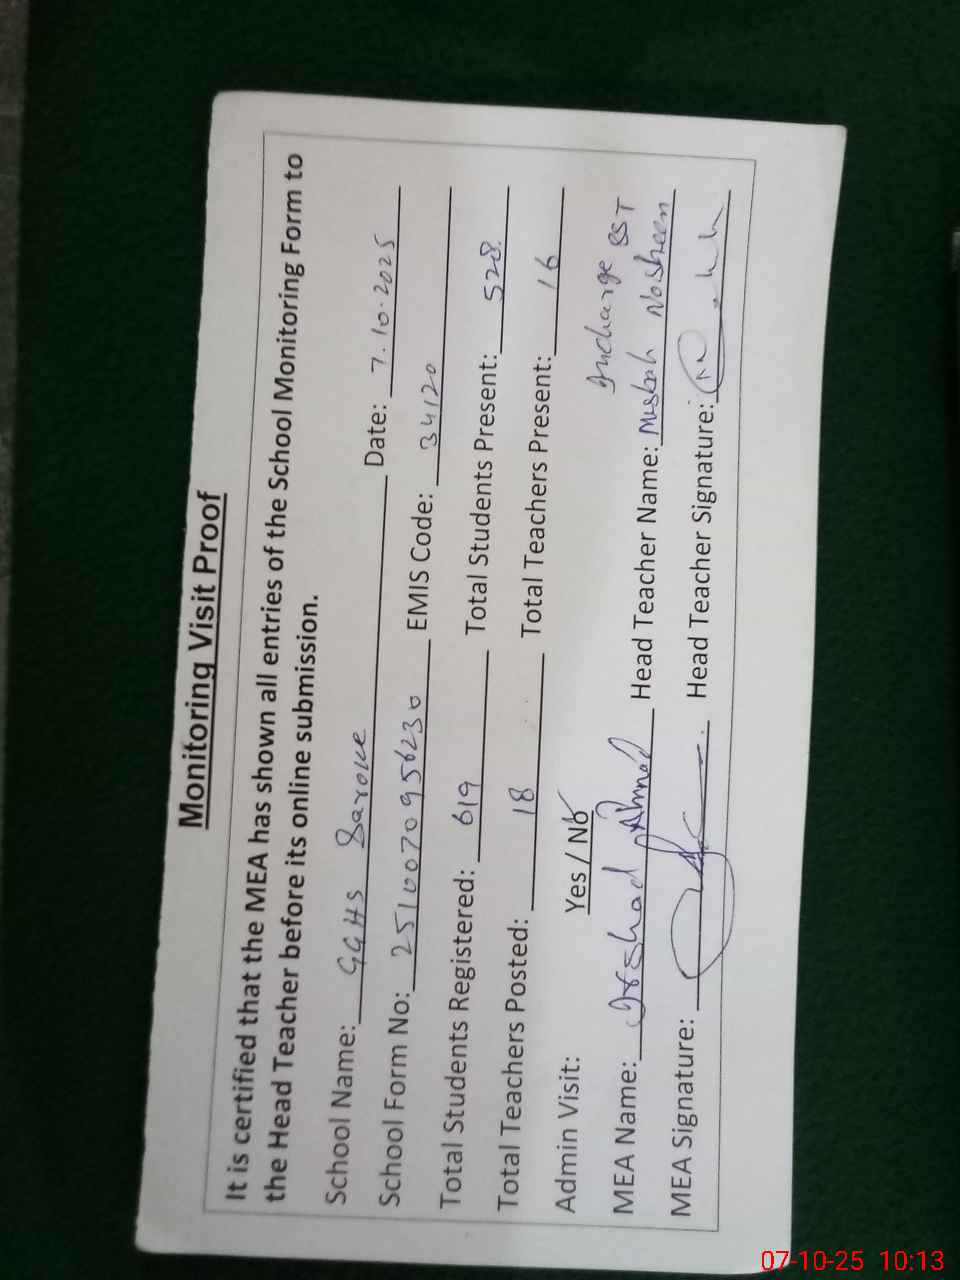 Monitoring Visit Proof
It is certified that the MEA has shown all entries of the School Monitoring Form to
the Head Teacher before its online submission.
School Name: GGHS Saroke Date: 7.10.2025
School Form No: 2510070956230 EMIS Code: 34120
Total Students Registered: 619 Total Students Present: 528
Total Teachers Posted: 18 Total Teachers Present: 16
Admin Visit: Yes / No
Incharge SST
MEA Name: Irshad Ahmad Head Teacher Name: Misbah Nosheen
MEA Signature: Head Teacher Signature:
07-10-25 10:13